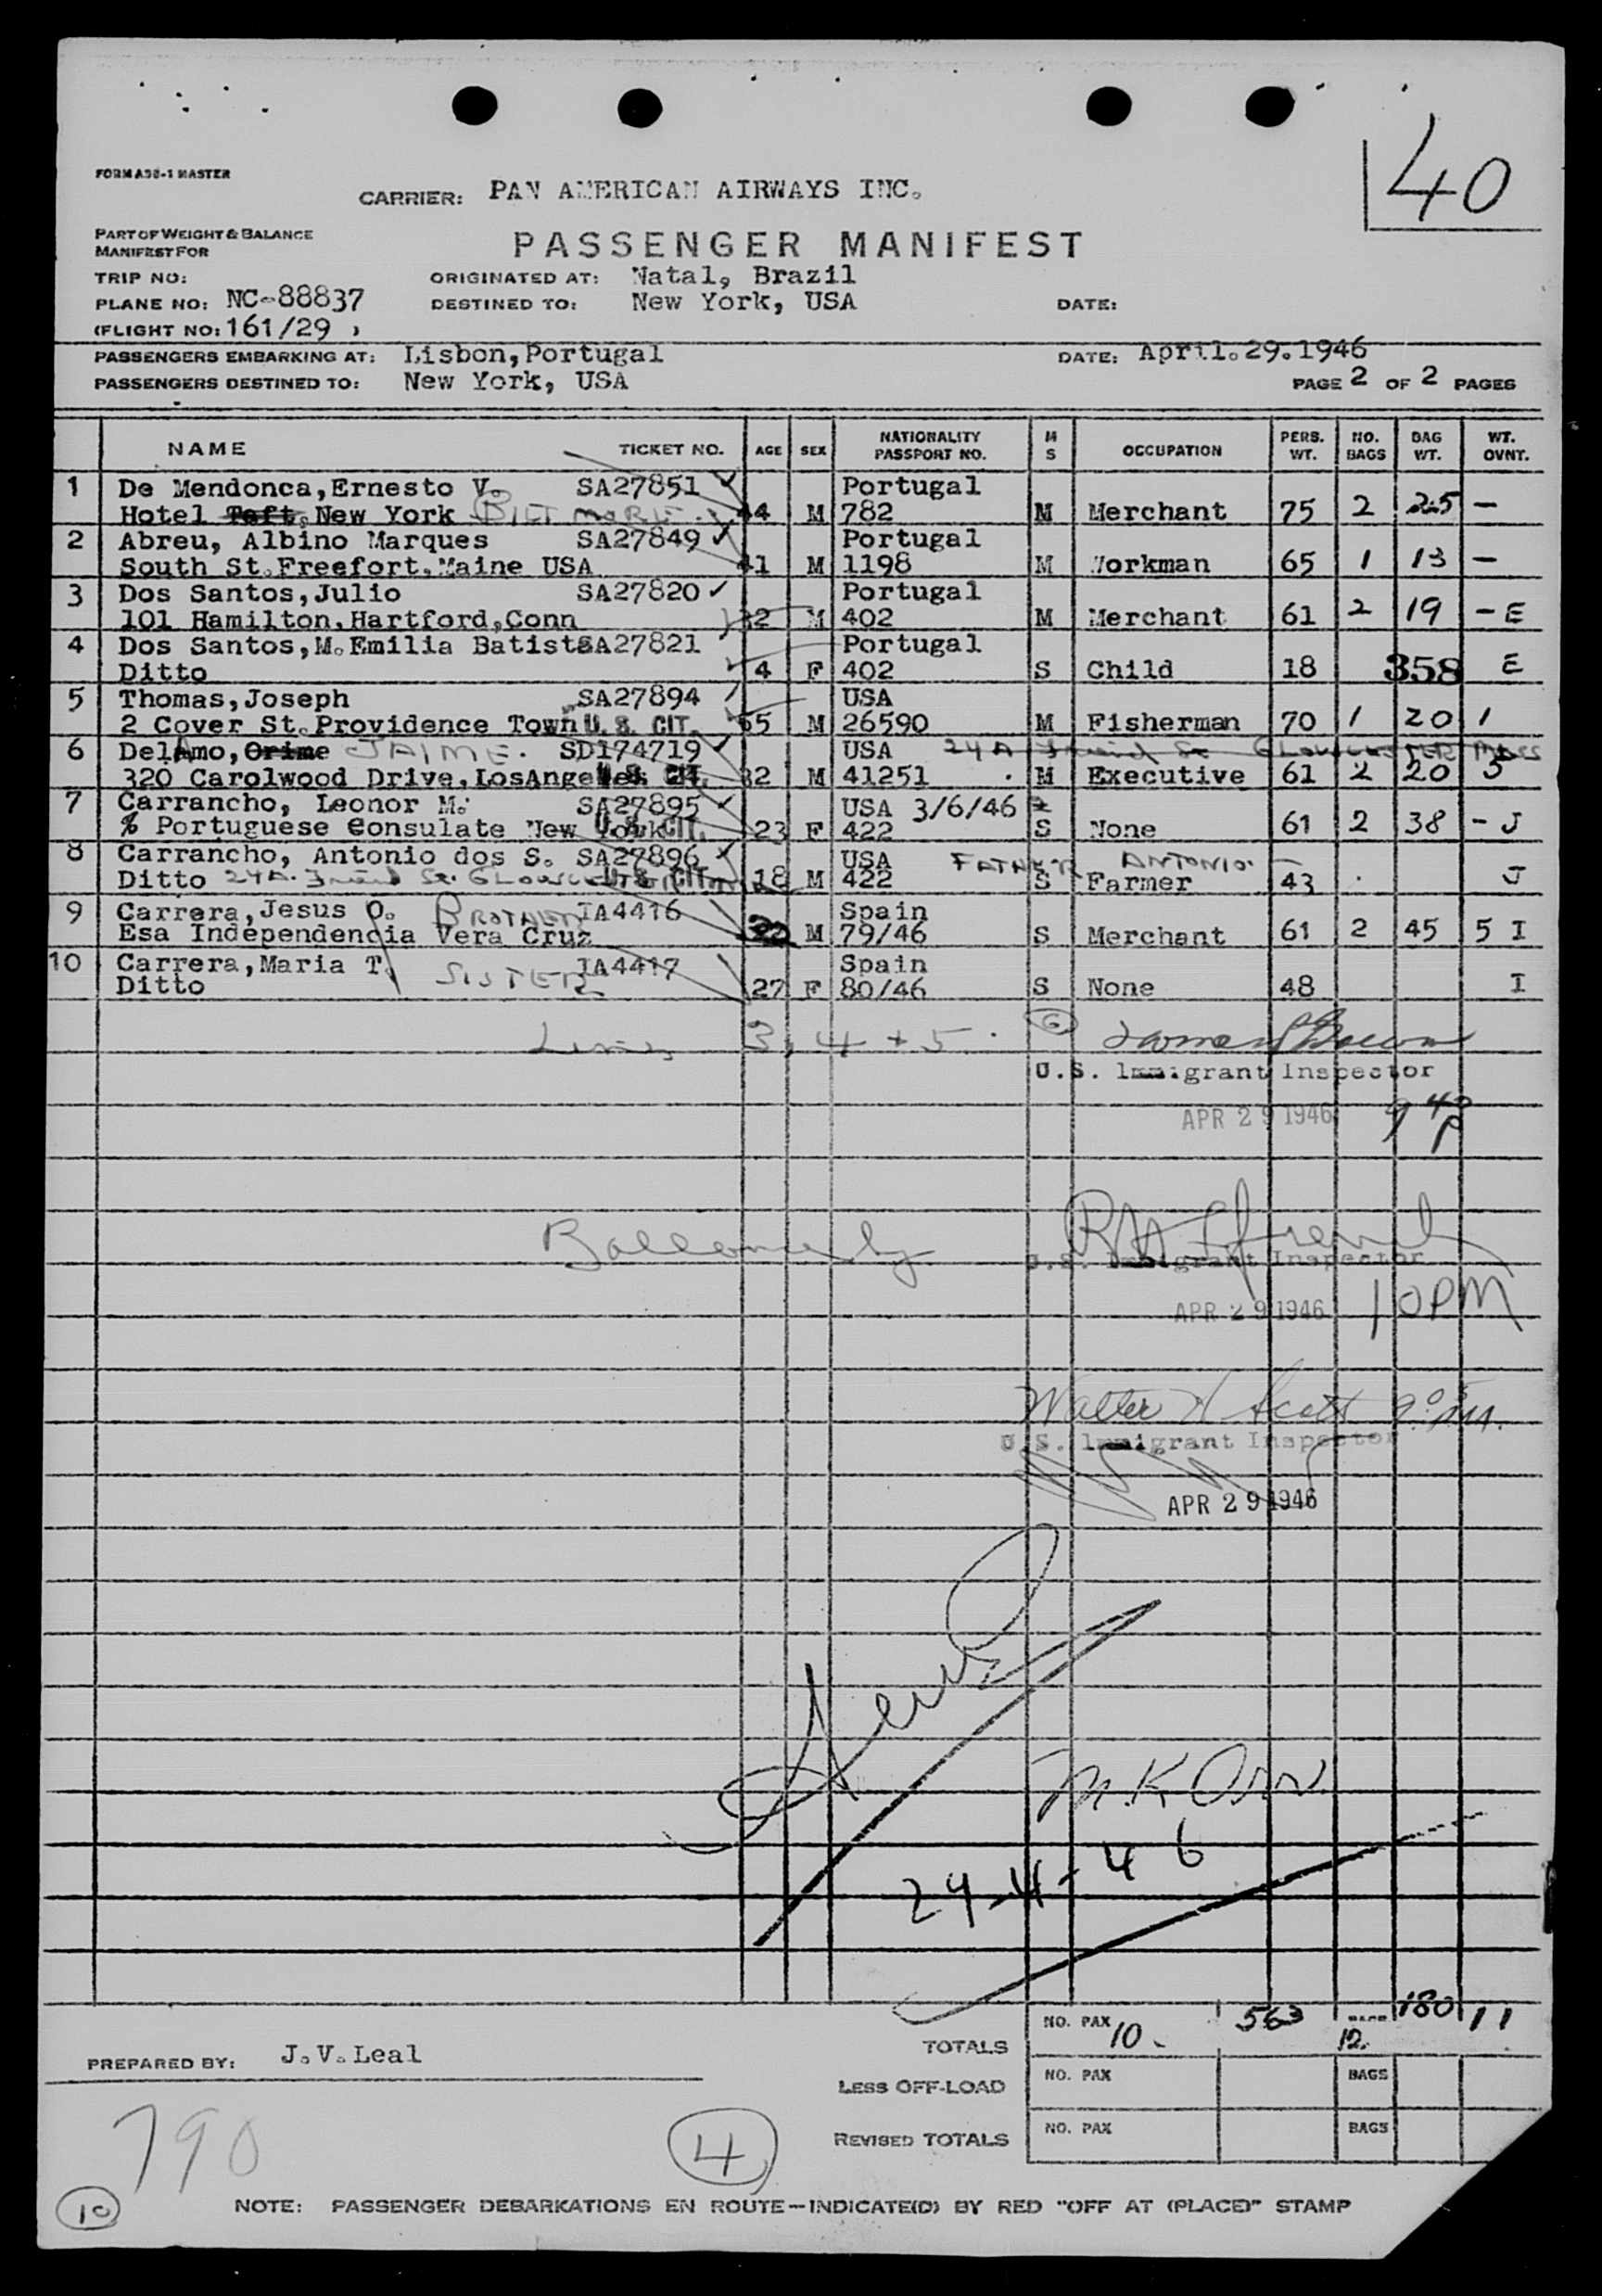 40
FORM A30-1 MASTER
CARRIER: PAN AMERICAN AIRWAYS INC.
PART OF WEIGHT & BALANCE
MANIFEST FOR
PASSENGER MANIFEST
TRIP NO:
ORIGINATED AT: Natal, Brazil
PLANE NO: NC-88837
DESTINED TO: New York, USA
DATE:
(FLIGHT NO: 161/29 )
PASSENGERS EMBARKING AT: Lisbon, Portugal
DATE: April.29.1946
PASSENGERS DESTINED TO: New York, USA
PAGE 2 OF 2 PAGES
NAME TICKET NO. AGE SEX NATIONALITY PASSPORT NO. M S OCCUPATION PERS. WT. NO. BAGS BAG WT. WT. OVNT.
1 De Mendonca, Ernesto V. SA27851 Portugal
Hotel Taft, New York BILTMORE. 44 M 782 M Merchant 75 2 25 -
2 Abreu, Albino Marques SA27849 Portugal
South St. Freefort. Maine USA 41 M 1198 M Workman 65 1 13 -
3 Dos Santos, Julio SA27820 Portugal
101 Hamilton. Hartford, Conn 32 M 402 M Merchant 61 2 19 - E
4 Dos Santos, M. Emilia Batista SA27821 Portugal
Ditto 4 F 402 S Child 18 358 E
5 Thomas, Joseph SA27894 USA
2 Cover St. Providence Town U. S. CIT. 65 M 26590 M Fisherman 70 1 20 1
6 DelAmo, Orime JAIME. SD174719 USA 24A Friend St GLOUCESTER MASS
320 Carolwood Drive, LosAngeles U. S. CIT. 32 M 41251 M Executive 61 2 20 5
7 Carrancho, Leonor M. SA27895 USA 3/6/46
% Portuguese Consulate New York U. S. CIT. 23 F 422 S None 61 2 38 - J
8 Carrancho, Antonio dos S. SA27896 USA FATHER ANTONIO.
Ditto 24A. Friend St. U. S. CIT. 18 M 422 S Farmer 43 J
9 Carrera, Jesus O. BROTHER IA4416 Spain
Esa Independencia Vera Cruz 32 M 79/46 S Merchant 61 2 45 5 I
10 Carrera, Maria T. SISTER IA4417 Spain
Ditto 27 F 80/46 S None 48 I
Lines 3, 4 + 5.
U.S. Immigrant Inspector
APR 29 1946 9 40 P
U.S. Immigrant Inspector
APR 29 1946 10PM
Walter H Scott
U.S. Immigrant Inspector
APR 29 1946
M.K. Orr
29-4-46
TOTALS NO. PAX 10 563 BAGS 12 180 11
PREPARED BY: J.V. Leal
LESS OFF-LOAD NO. PAX BAGS
REVISED TOTALS NO. PAX BAGS
790
4
10
NOTE: PASSENGER DEBARKATIONS EN ROUTE—INDICATE(D) BY RED "OFF AT (PLACE)" STAMP